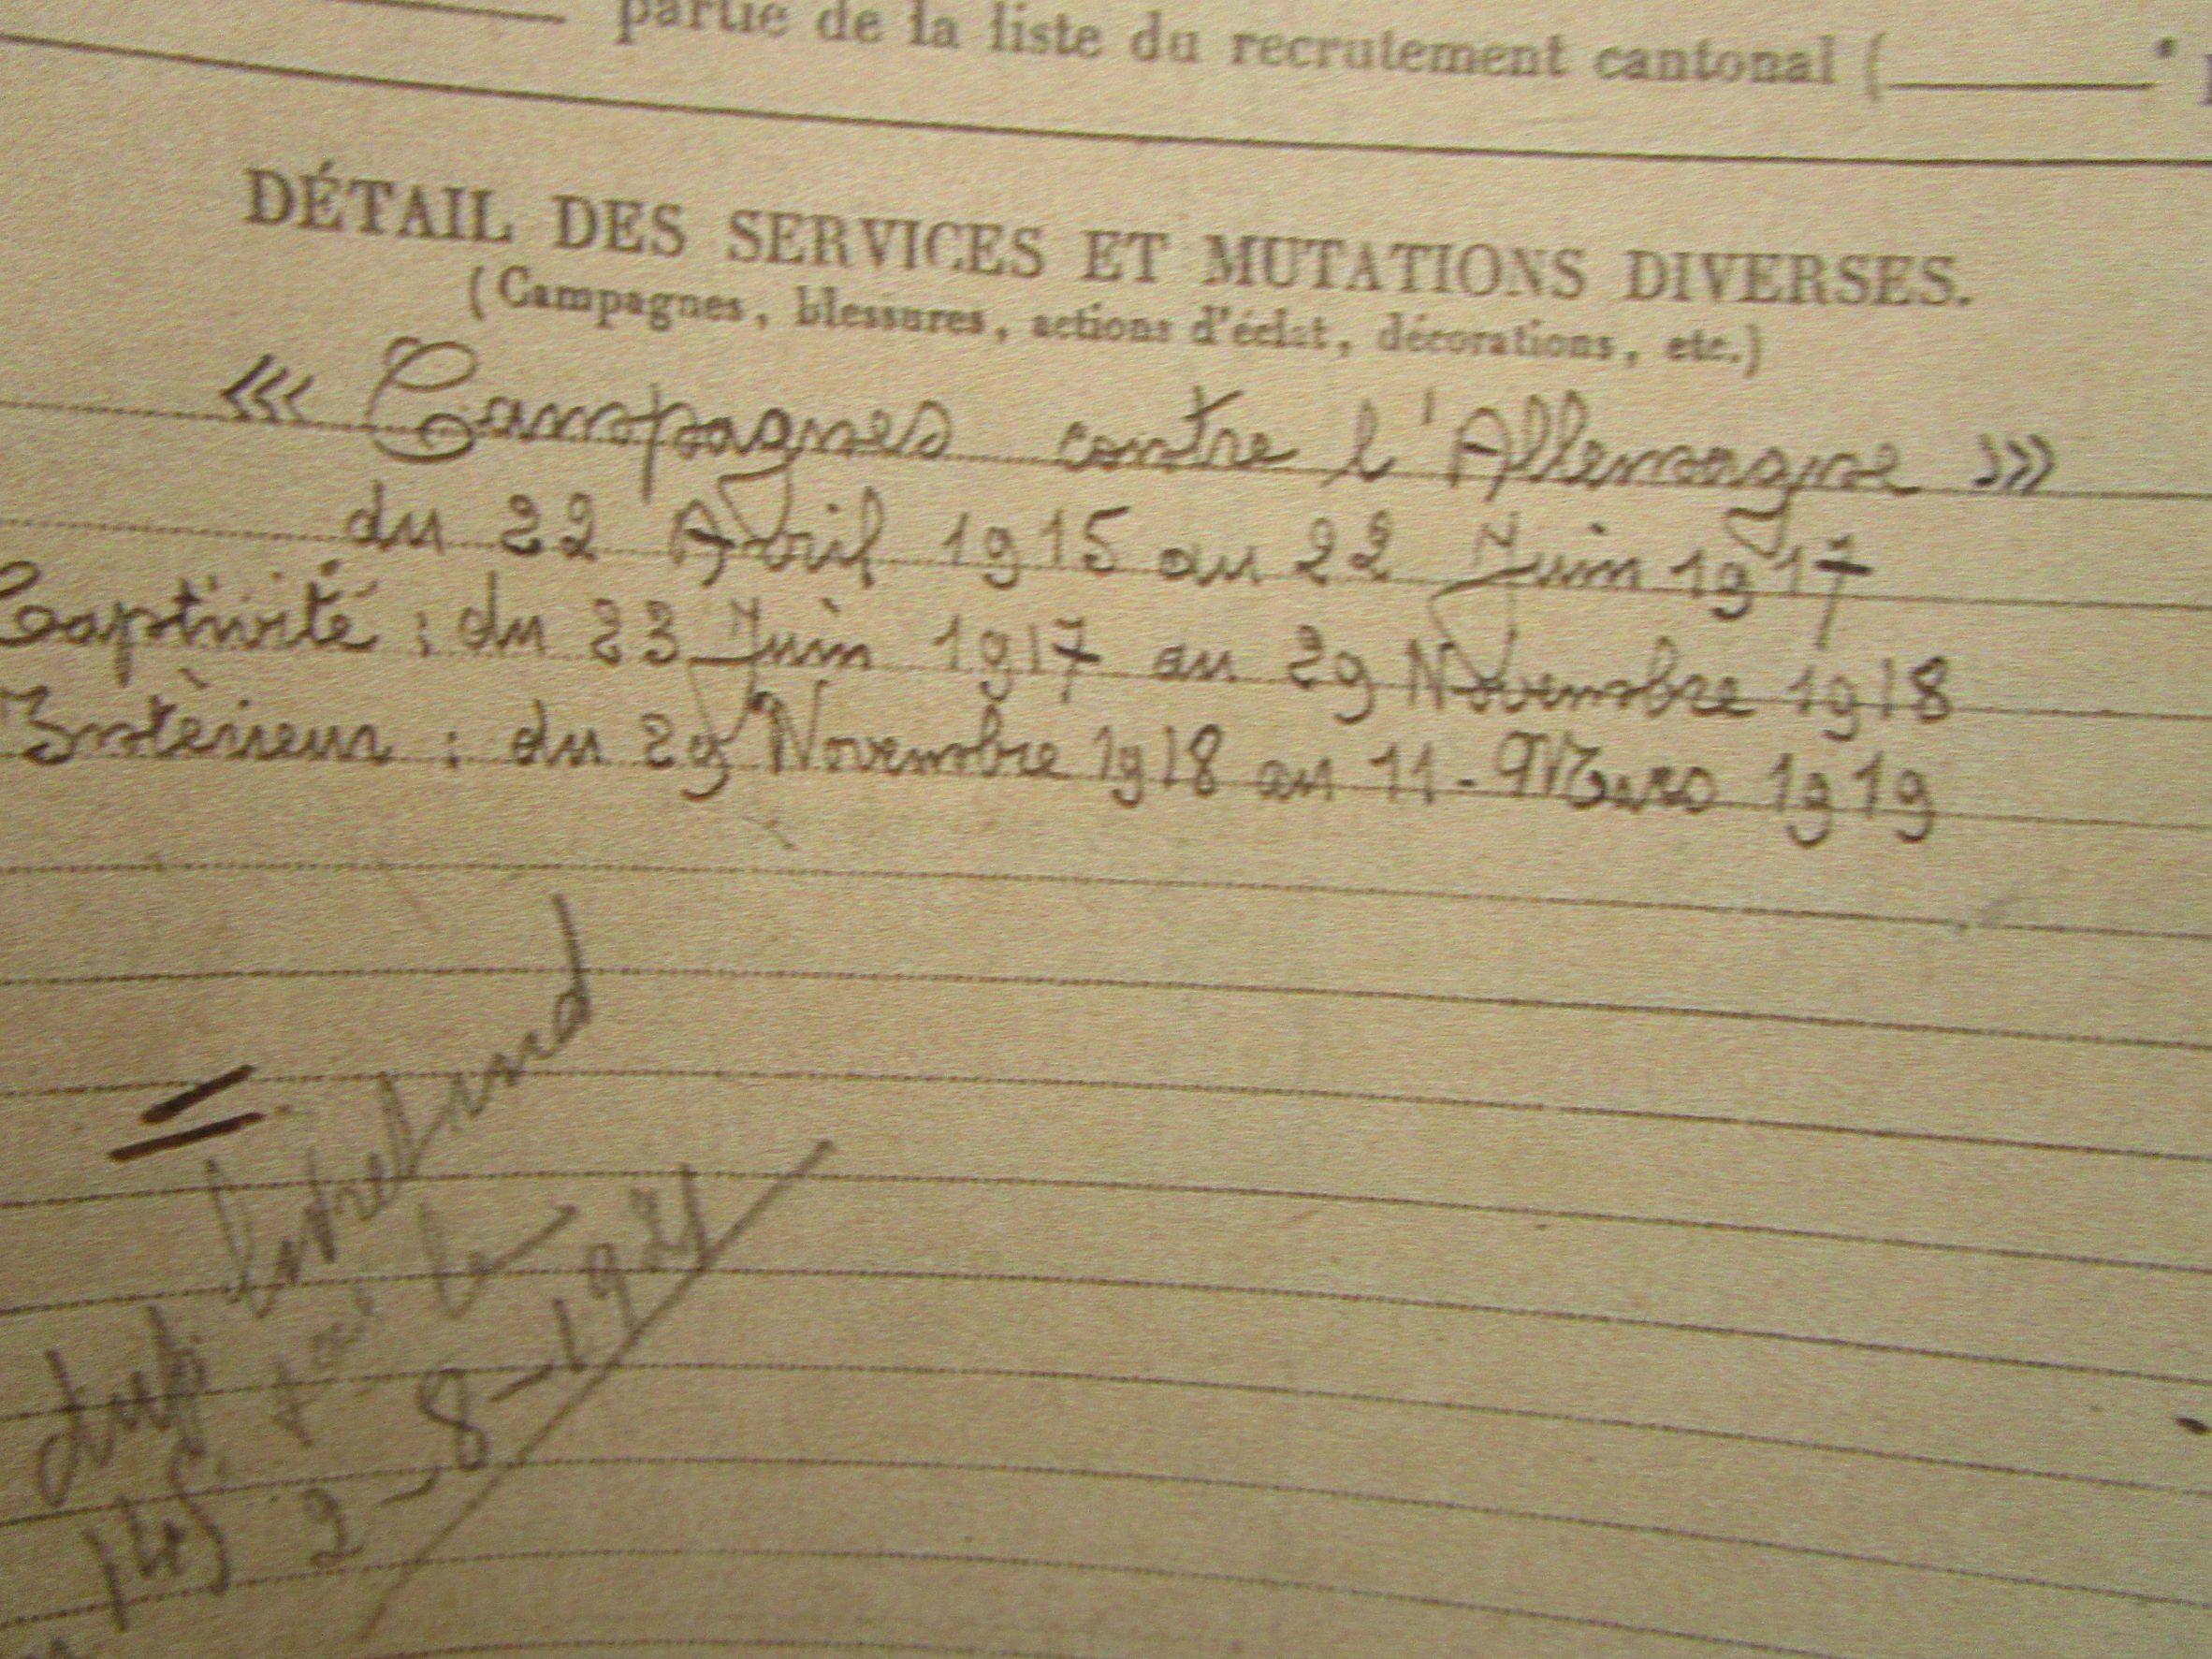 partie de la liste du recrutement cantonal (
DÉTAIL DES SERVICES ET MUTATIONS DIVERSES.
(Campagnes, blessures, actions d'éclat, décorations, etc.)
««« Campagnes contre l'Allemagne »»»
du 22 Avril 1915 au 22 Juin 1917
Captivité : du 23 Juin 1917 au 29 Novembre 1918
Intèrieur : du 29 Novembre 1918 au 11 - Mars 1919
dup livret ind
145
le
2-8-1921